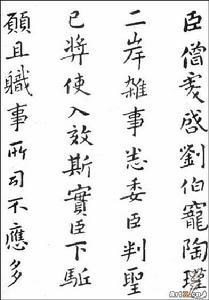 臣僧虔啓劉伯寵陶瓘
二岸雑事悉委臣判聖
已奬使入效斯實臣下駈
願且職事所司不應多